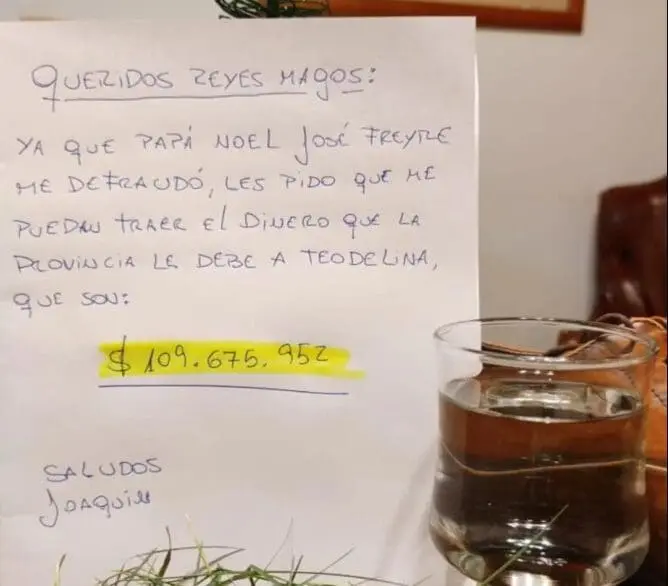 QUERIDOS REYES MAGOS:
YA QUE PAPÁ NOEL JOSÉ FREYRE
ME DEFRAUDÓ, LES PIDO QUE ME
PUEDAN TRAER El DINERO QUE LA
PROVINCIA LE DEBE A TEODELINA,
QUE SON:
$ 109.675.952
SALUDOS
JOAQUIN